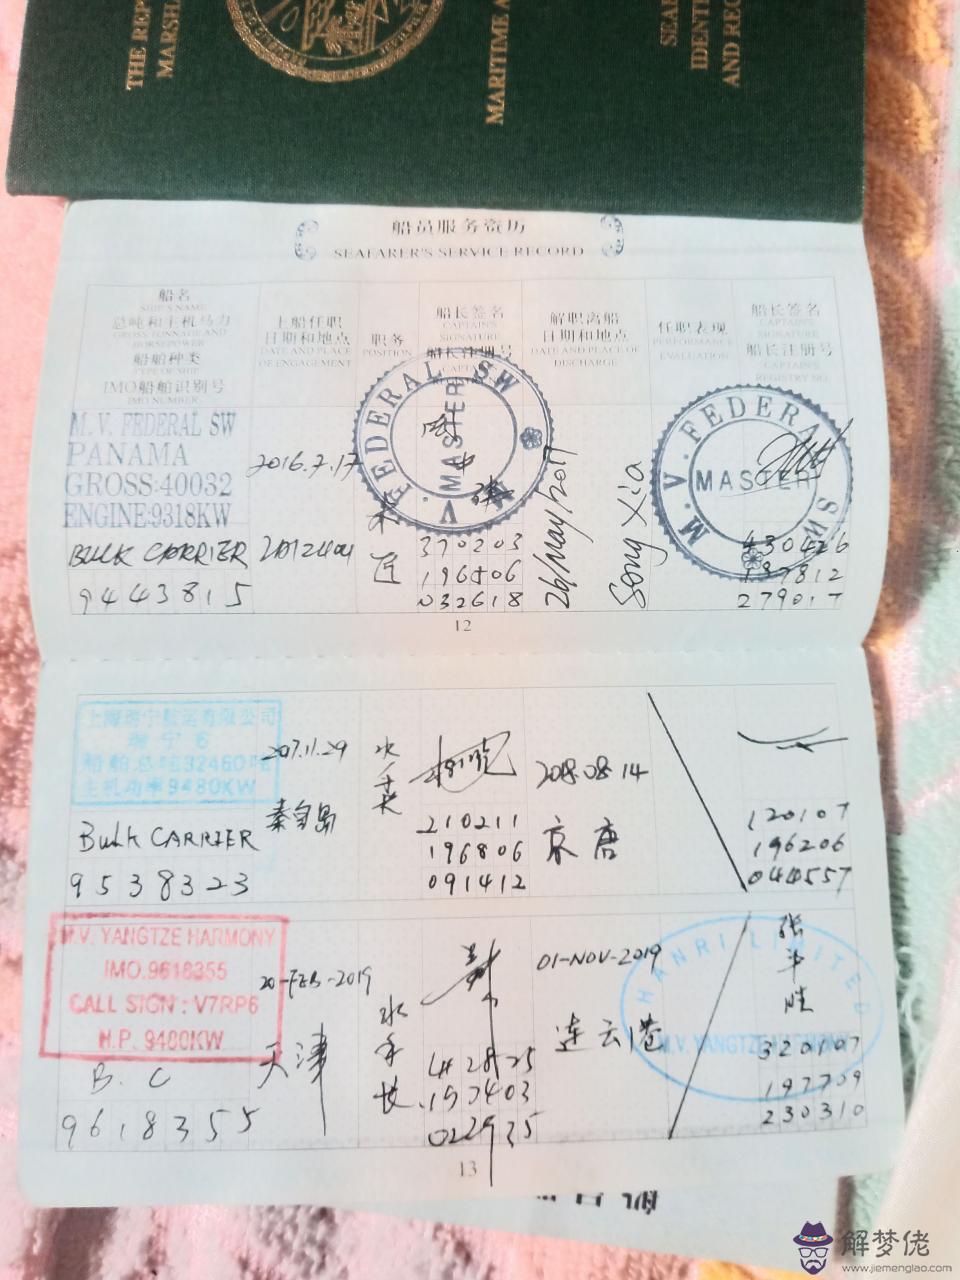 THE REP
MARSHA
MARITIME A
SEAF
IDENTI
AND REC
船员服务资历
SEAFARER'S SERVICE RECORD
船名
SHIP'S NAME
总吨和主机马力
GROSS TONNAGE AND
HORSEPOWER
船舶种类
TYPE OF SHIP
IMO船舶识别号
IMO NUMBER
上船任职
日期和地点
DATE AND PLACE
OF ENGAGEMENT
职务
POSITION
船长签名
CAPTAIN'S
SIGNATURE
船长注册号
解职离船
日期和地点
DATE AND PLACE OF
DISCHARGE
任职表现
PERFORMANCE
EVALUATION
船长签名
CAPTAIN'S
SIGNATURE
船长注册号
CAPTAIN'S
REGISTRY NO.
M.V. FEDERAL SW
PANAMA
GROSS:40032
ENGINE:9318KW
BULK CARRIER
9443815
2016.7.17
M.V. FEDERAL SW
MASTER
370203
196506
032618
26/May/2017
Song Xia
M.V. FEDERAL SW
MASTER
430426
197812
279017
12
船舶总吨32460吨
主机功率9480KW
BULK CARRIER
9538323
秦皇岛
水手长
210211
196806
091412
2018.08.14
京唐
120107
196206
044557
M.V. YANGTZE HARMONY
IMO.9618355
CALL SIGN : V7RP6
H.P. 9480KW
B. C
9618355
20-FEB-2019
天津
水手长
01-NOV-2019
连云港
HANRI LIMITED
M.V. YANGTZE HARMONY
230310
13
解梦佬
www.jiemenglao.com